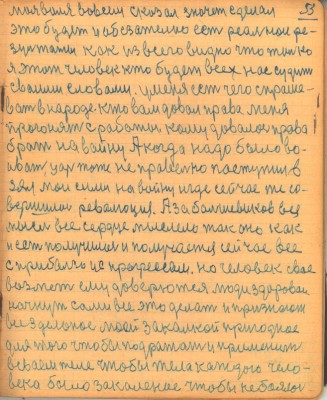 53
моя воля во всем сказал значет сделал
это будет и обезательно ест реальной ре-
зультатам как из всего видно что только
я этот человек кто будет всех нас судит
своими словами. у меня ест чего спраше-
ват в народе кто вам довал права меня
прогонят с работы кому довалос права
брат на вайну А когда надо было во-
иват, уах тоже не правельно поступили
взял мои сили на вайну и где сейчас те со-
вершили революция. А за балшевиков вся
мысел все сердце мыслело так оно как
и ест получилос и получается сейчас все
с прибалю и с прогресом. но человек свое
возмет ему доверются люди здоровая
начнут сами все это делат и признают
все зделоное моей закалкой пригодное
для того чтобы подражат и применит
в своем теле чтобы тела каждого чело-
века было закаленае чтобы не боялос